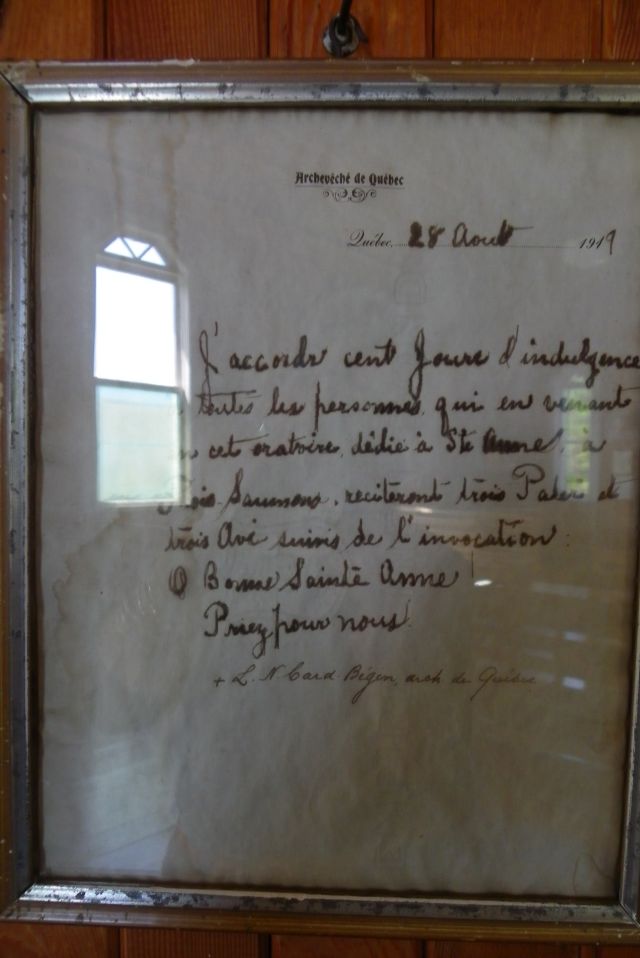 Archevêché de Québec
Québec, 28 Aout 1919
J'accorde cent Jours d'indulgence
à toutes les personnes, qui en venant
en cet oratoire, dédié à Ste Anne, a
Trois-Saumons, reciteront trois Pater et
trois Avé suivis de l'invocation:
O Bonne Sainte Anne!
Priez pour nous!
+ L. N. Card. Bégin, arch. de Québec